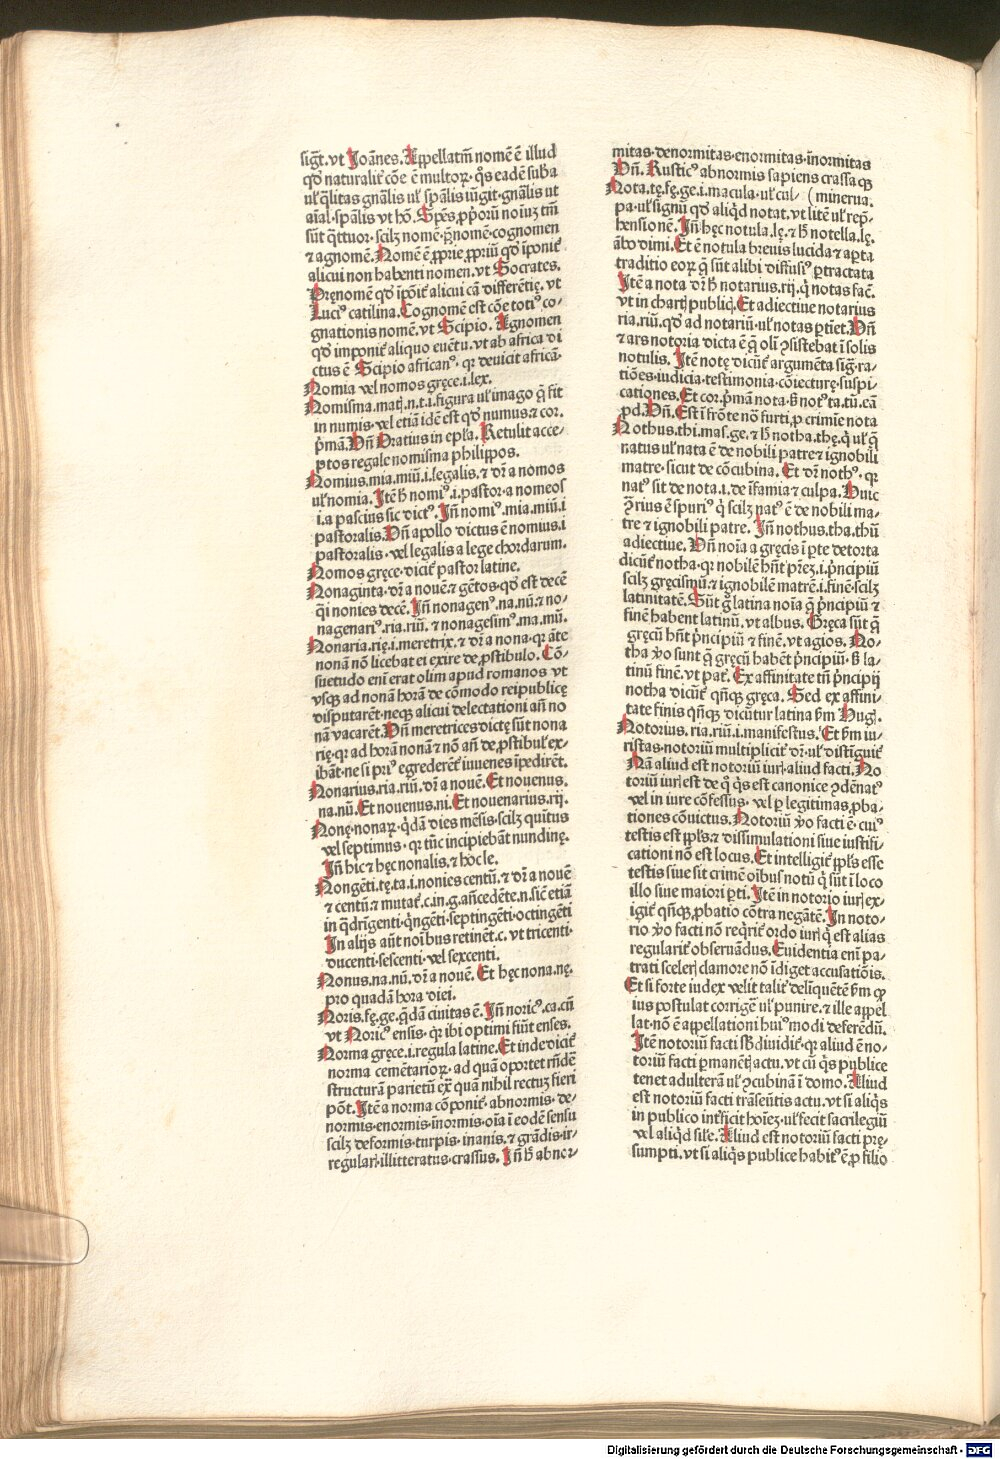 sigt̄. vt Joānes. Appellatm̄ nomē ē illud
qd̓ naturalit̓ cōe ē multoꝝ. q̄s eadē suba
ul̓ q̄litas gn̄alis ul̓ spālis iūgit. gn̄alis ut
aīal. spālis vt hō. Spēs ꝓpriorū noīuꝫ tm̄
sūt q̄ttuor. scilꝫ nomē. p̄nomē. cognomen
⁊ agnomē. Nomē ē ꝓprie ꝓpriū qd̓ īponit̄
alicui non habenti nomen. vt Socrates.
Pręnomē qd̓ ip̄oit̄ alicui cā differētię. vt
Luciꝰ catilina. Cognomē est cōe totiꝰ co-
gnationis nomē. vt Scipio. Agnomen
qd̓ imponit̄ aliquo euētu. vt ab africa di
ctus ē Scipio africanꝰ. qꝛ deuicit africā.
Nomia vel nomos gręce. i. lex.
Nomisma. matꝭ. n. t. i. figura ul̓ imago q̄ fit
in numis. vel etiā idē est qd̓ numus. ⁊ cor.
p̄mā. Vn̄ Oratius in epl̓a. Retulit acce-
ptos regale nomisma philippos.
Nomius. mia. miū. i. legalis. ⁊ dr̄ a nomos
ul̓ nomia. Itē h̄ nomiꝰ. i. pastor. a nomeos
i. a pascius sic dictꝰ. Jn̄ nomiꝰ. mia. miū. i
pastoralis. Vn̄ apollo dictus ē nomius. i
pastoralis. vel legalis a lege chordarum.
Nomos gręce. dicit̄ pastor latine.
Nonaginta. dr̄ a nouē. ⁊ gētos. qd̓ est decē
q̄i nonies decē. Jn̄ nonagenꝰ. na. nū. ⁊ no-
nagenariꝰ. ria. riū. ⁊ nonagesimꝰ. ma. mū.
Nonaria. rię. i. meretrix. ⁊ dr̄ a nona. qꝛ āte
nonā nō licebat ei exire de ꝓstibulo. Cō-
suetudo eni erat olim apud romanos vt
vsqꝫ ad nonā horā de cōmodo reipublicę
disputarēt. neqꝫ alicui delectationi an̄ no
nā vacarēt. Vn̄ meretrices dictę sūt nona
rię. qꝛ ad horā nonā ⁊ nō an̄ de ꝓstibul̓ ex-
ibāt. ne si priꝰ egrederēt̄ iuuenes īpedirēt.
Nonarius. ria. riū. dr̄ a nouē. Et nouenus.
na. nū. Et nouenus. ni. Et nouenarius. rij.
Nonę. nonaꝝ. q̄dā dies mēsis. scilꝫ quītus
vel septimus. qꝛ tūc incipiebāt nundinę.
Jn̄ hic ⁊ hęc nonalis. ⁊ hoc le.
Nongēti. tę. ta. i. nonies centū. ⁊ dr̄ a nouē
⁊ centū. ⁊ mutat̄. c. in. g. an̄cedēte. n. sic etiā
in q̄drīgenti. q̄ngēti. septingēti. octingēti
In alijs aūt noībus retinēt. c. vt tricenti.
ducenti. sescenti. vel sexcenti.
Nonus. na. nū. dr̄ a nouē. Et hęc nona. nę.
pro quadā hora diei.
Noris. fę. ge. q̄dā ciuitas ē. Jn̄ noricꝰ. ca. cū
vt Noricꝰ ensis. qꝛ ibi optimi fiūt enses.
Norma gręce. i. regula latine. Et inde dicit̄
norma cemētarioꝝ. ad quā oportet rn̄dē
structurā parietū ex̄ quā nihil rectuꝫ fieri
pōt. Itē a norma cōponit̄. abnormis. de-
normis. enormis. inormis. oīa ī eodē sensu
scilꝫ deformis. turpis. inanis. ⁊ grādis. ir-
regularꝭ. illitteratus. crassus. Jn̄ h̄ abnor-
mitas. denormitas. enormitas. inormitas
Vn̄. Rusticꝰ abnormis sapiens crassa qꝫ
Nota. tę. fę. ge. i. macula. ul̓ cul- (minerua.
pa. ul̓ signū qd̓ aliqd̓ notat. vt litē ul̓ rep̄-
hensionē. Jn̄ hęc notula. lę. ⁊ h̄ notella. lę.
ābo dimi. Et ē notula breuis lucida ⁊ apta
traditio eoꝝ q̄ sūt alibi diffusiꝰ ꝑtractata
Itē a nota dr̄ h̄ notarius. rij. q̄ notas fac̄.
vt in chartꝭ publicꝭ. Et adiectiue notarius
ria. riū. qd̓ ad notariū. ul̓ notas ꝑtiet. Vn̄
⁊ ars notoria dicta ē q̄ oli ꝯsistebat ī solis
notulis. Itē notę dicūt̄ argumēta sig̓. ra-
tiōes. iudicia. testimonia. cōiecturę. suspi
cationes. Et cor. p̄mā nota. s̄ notꝰ ta. tū. cā
pd̓. Vn̄. Est ī frōte nō furti. ꝓ crimīe nota
Nothus. thi. mas. ge. ⁊ h̄ notha. thę. q̓ ul̓ q̄
natus ul̓ nata ē de nobili patre ⁊ ignobili
matre. sicut de cōcubina. Et dr̄ nothꝰ. qꝛ
natꝰ sit de nota. i. de ifamia ⁊ culpa. Huic
ꝯ̄rius ē spuriꝰ q̓ scilꝫ natꝰ ē de nobili ma-
tre ⁊ ignobili patre. Jn̄ nothus. tha. thū
adiectiue. Vn̄ noīa a gręcis ī pte detorta
dicūt̄ notha. qꝛ nobilē hn̄t p̄reꝫ. i. p̄ncipiū
scilꝫ gręcismū. ⁊ ignobilē matrē. i. finē. scilꝫ
latinitatē. Sūt g̓ latina noīa q̄ p̄ncipiū ⁊
finē habent latinū. vt albus. Gręca sūt q̄
gręcū hn̄t p̄ncipiū ⁊ finē. vt agios. No-
tha v̓o sunt q̄ gręcū habēt p̄ncipiū. s̄ la-
tinū finē. vt pat̄. Ex affinitate tn̄ p̄ncipij
notha dicūt̄ qn̄qꝫ gręca. Sed ex affini-
tate finis qn̄qꝫ dicūtur latina s̄m Hug̓.
Notorius. ria. riū. i. manifestus. Et s̄m iu-
ristas. notoriū multiplicit̓ dr̄. ul̓ distīguit̄
Nā aliud est notoriū iurꝭ. aliud facti. No
toriū iurꝭ est de q̓ q̄s est canonice ꝯdēnatꝰ
vel in iure cōfessus. vel ꝑ legitimas ꝓba-
tiones cōuictus. Notoriū v̓o facti ē. cuiꝰ
testis est ppl̓s. ⁊ dissimulationi siue iustifi-
cationi nō est locus. Et intelligit̄ ppl̓s esse
testis siue sit crimē oībus notū q̓ sūt ī loco
illo siue maiori ꝑti. Itē in notorio iurꝭ ex-
igit̄ qn̄qꝫ ꝓbatio cōtra negātē. In noto-
rio v̓o facti nō reqrit̄ ordo iurꝭ q̓ est alias
regularit̓ obseruādus. Euidentia eni pa-
trati scelerꝭ clamore nō īdiget accusatiōis.
Et si forte iudex velit talit̓ deliquētē s̄m qꝫ
ius postulat corrigē ul̓ punire. ⁊ ille appel
lat. nō ē appellationi huiꝰmodi deferēdū.
Itē notoriū facti sb̓diuidit̄. qꝛ aliud ē no-
toriū facti ꝑmanētꝭ actu. vt cū q̄s publice
tenet adulterā ul̓ ꝯcubinā ī domo. Aliud
est notoriū facti trāseūtis actu. vt si aliq̄s
in publico intficit hoīeꝫ. ul̓ fecit sacrilegiū
vel aliqd̓ sil̓e. Aliud est notoriū facti prę-
sumpti. vt si aliq̄s publice habit̄ꝰ ē ꝓ filio
Digitalisierung gefördert durch die Deutsche Forschungsgemeinschaft - DFG